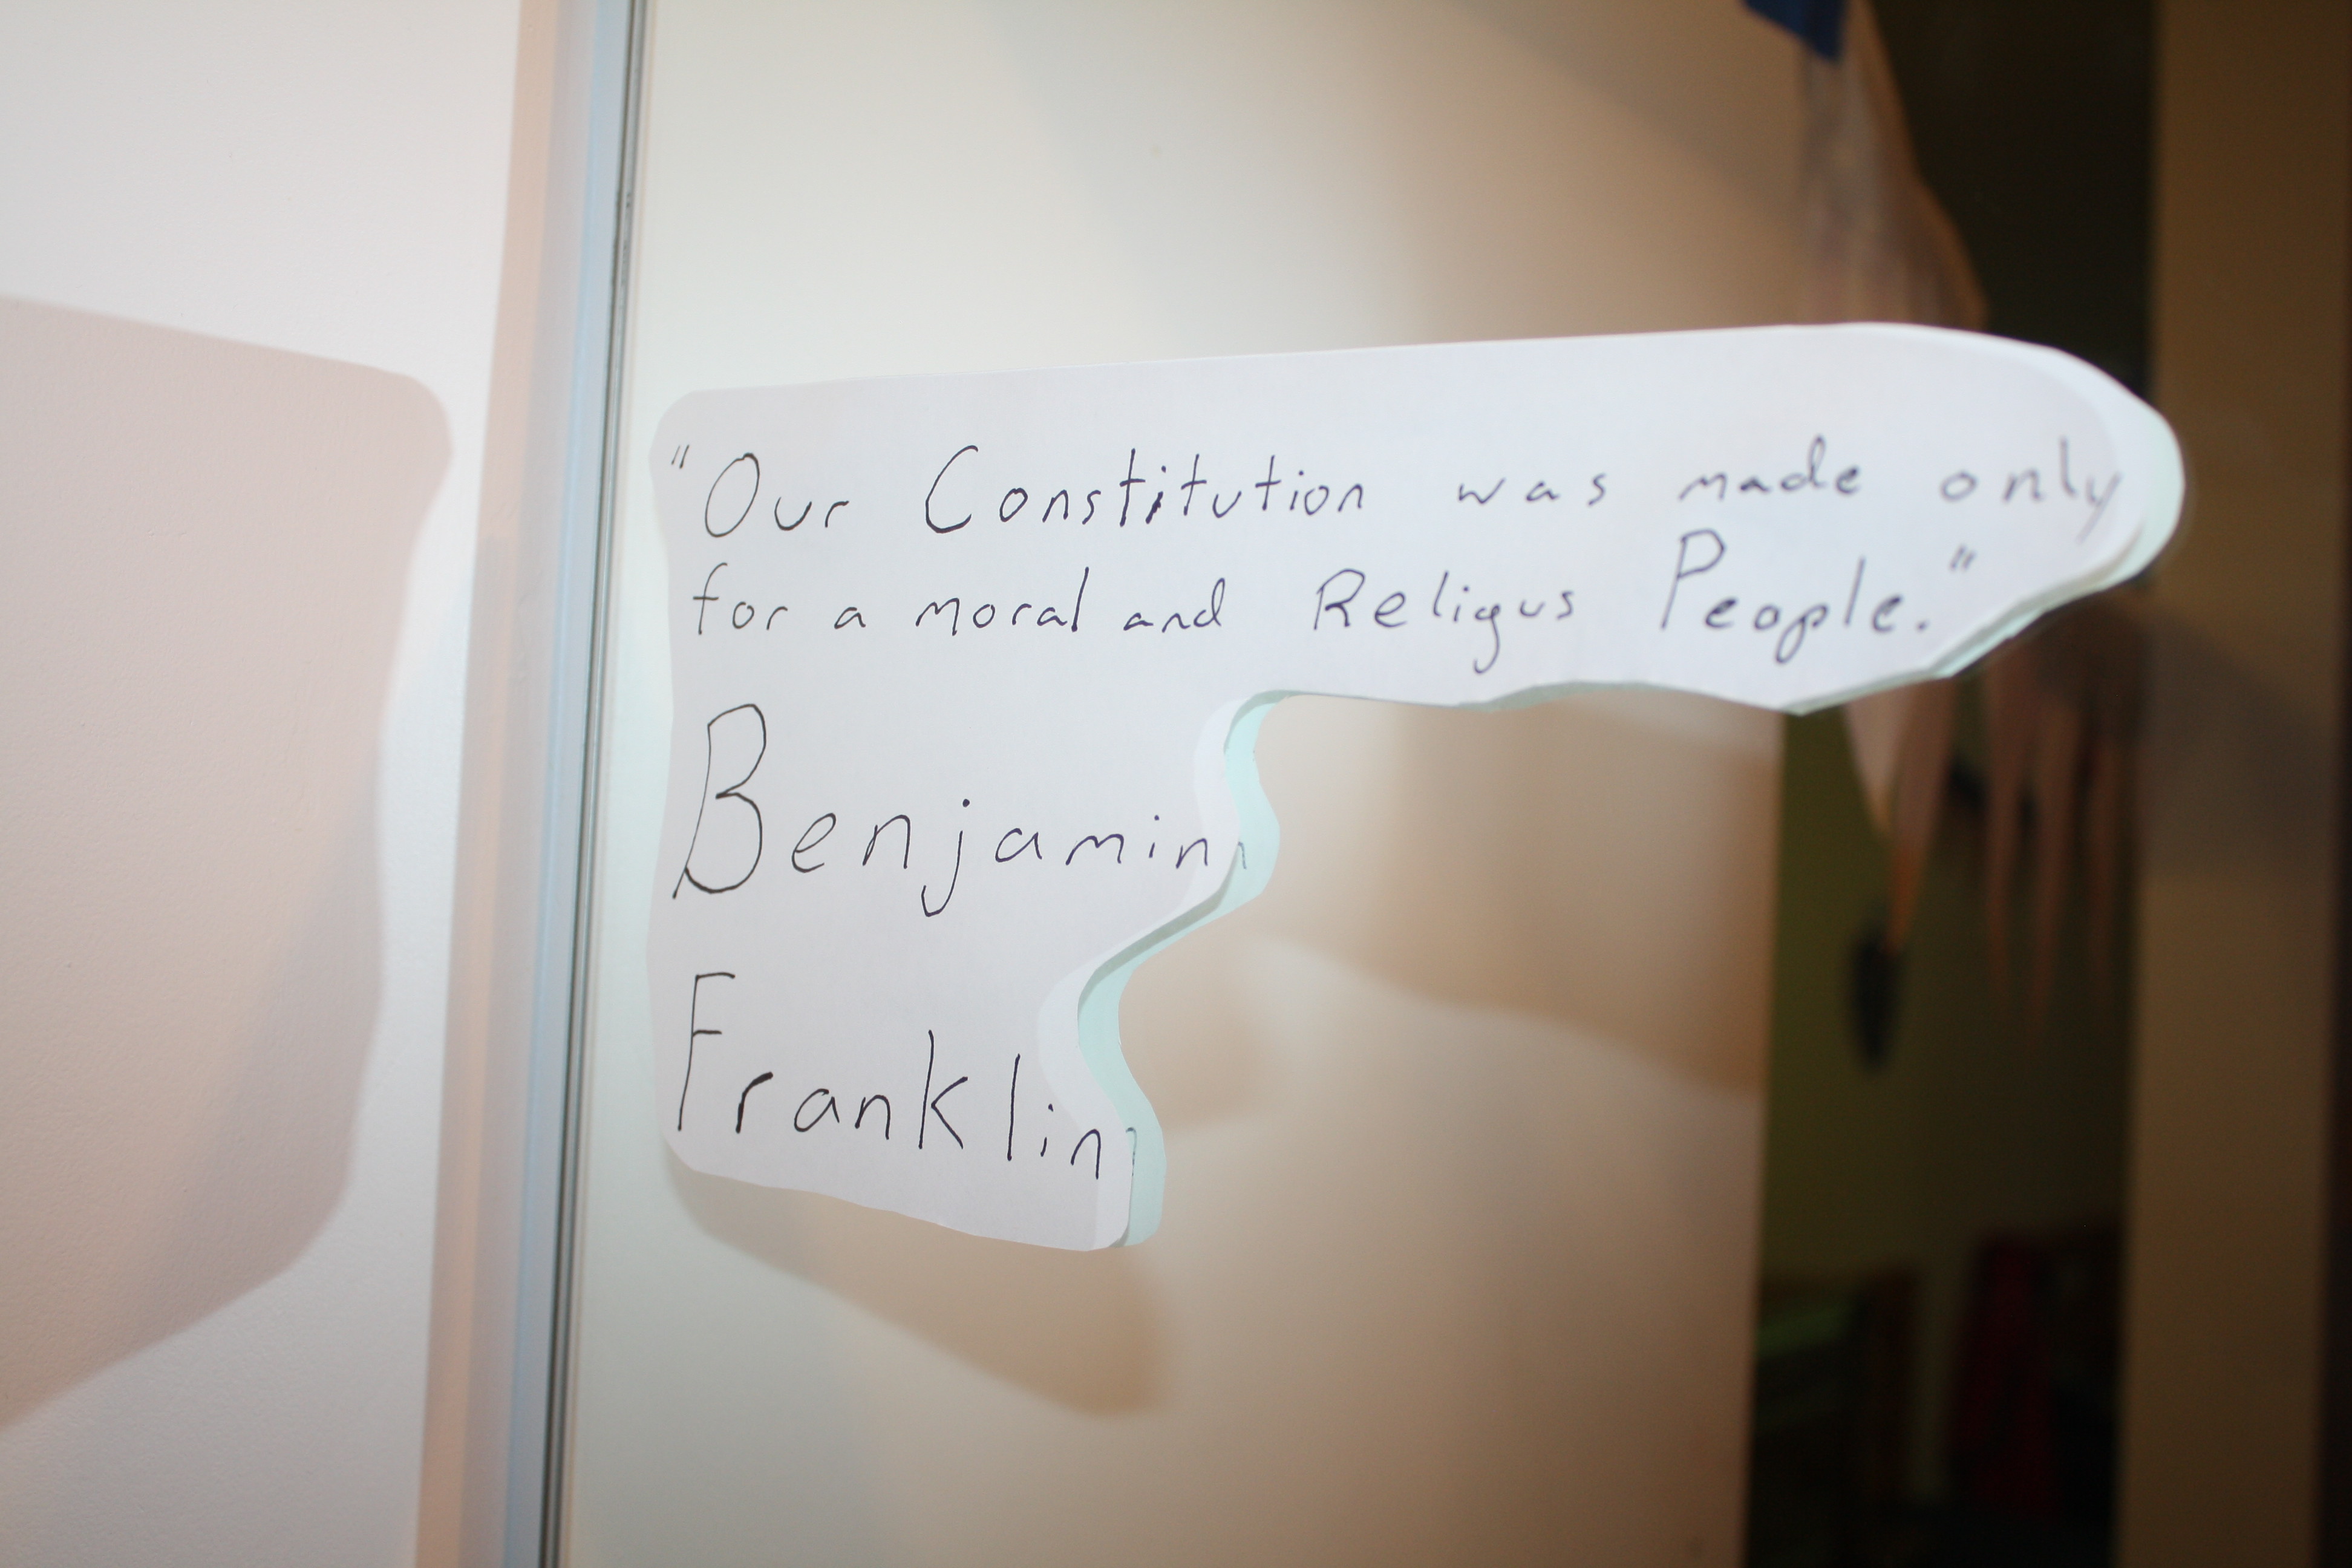 "Our Constitution was made only
for a moral and Religus People."
Benjamin
Franklin